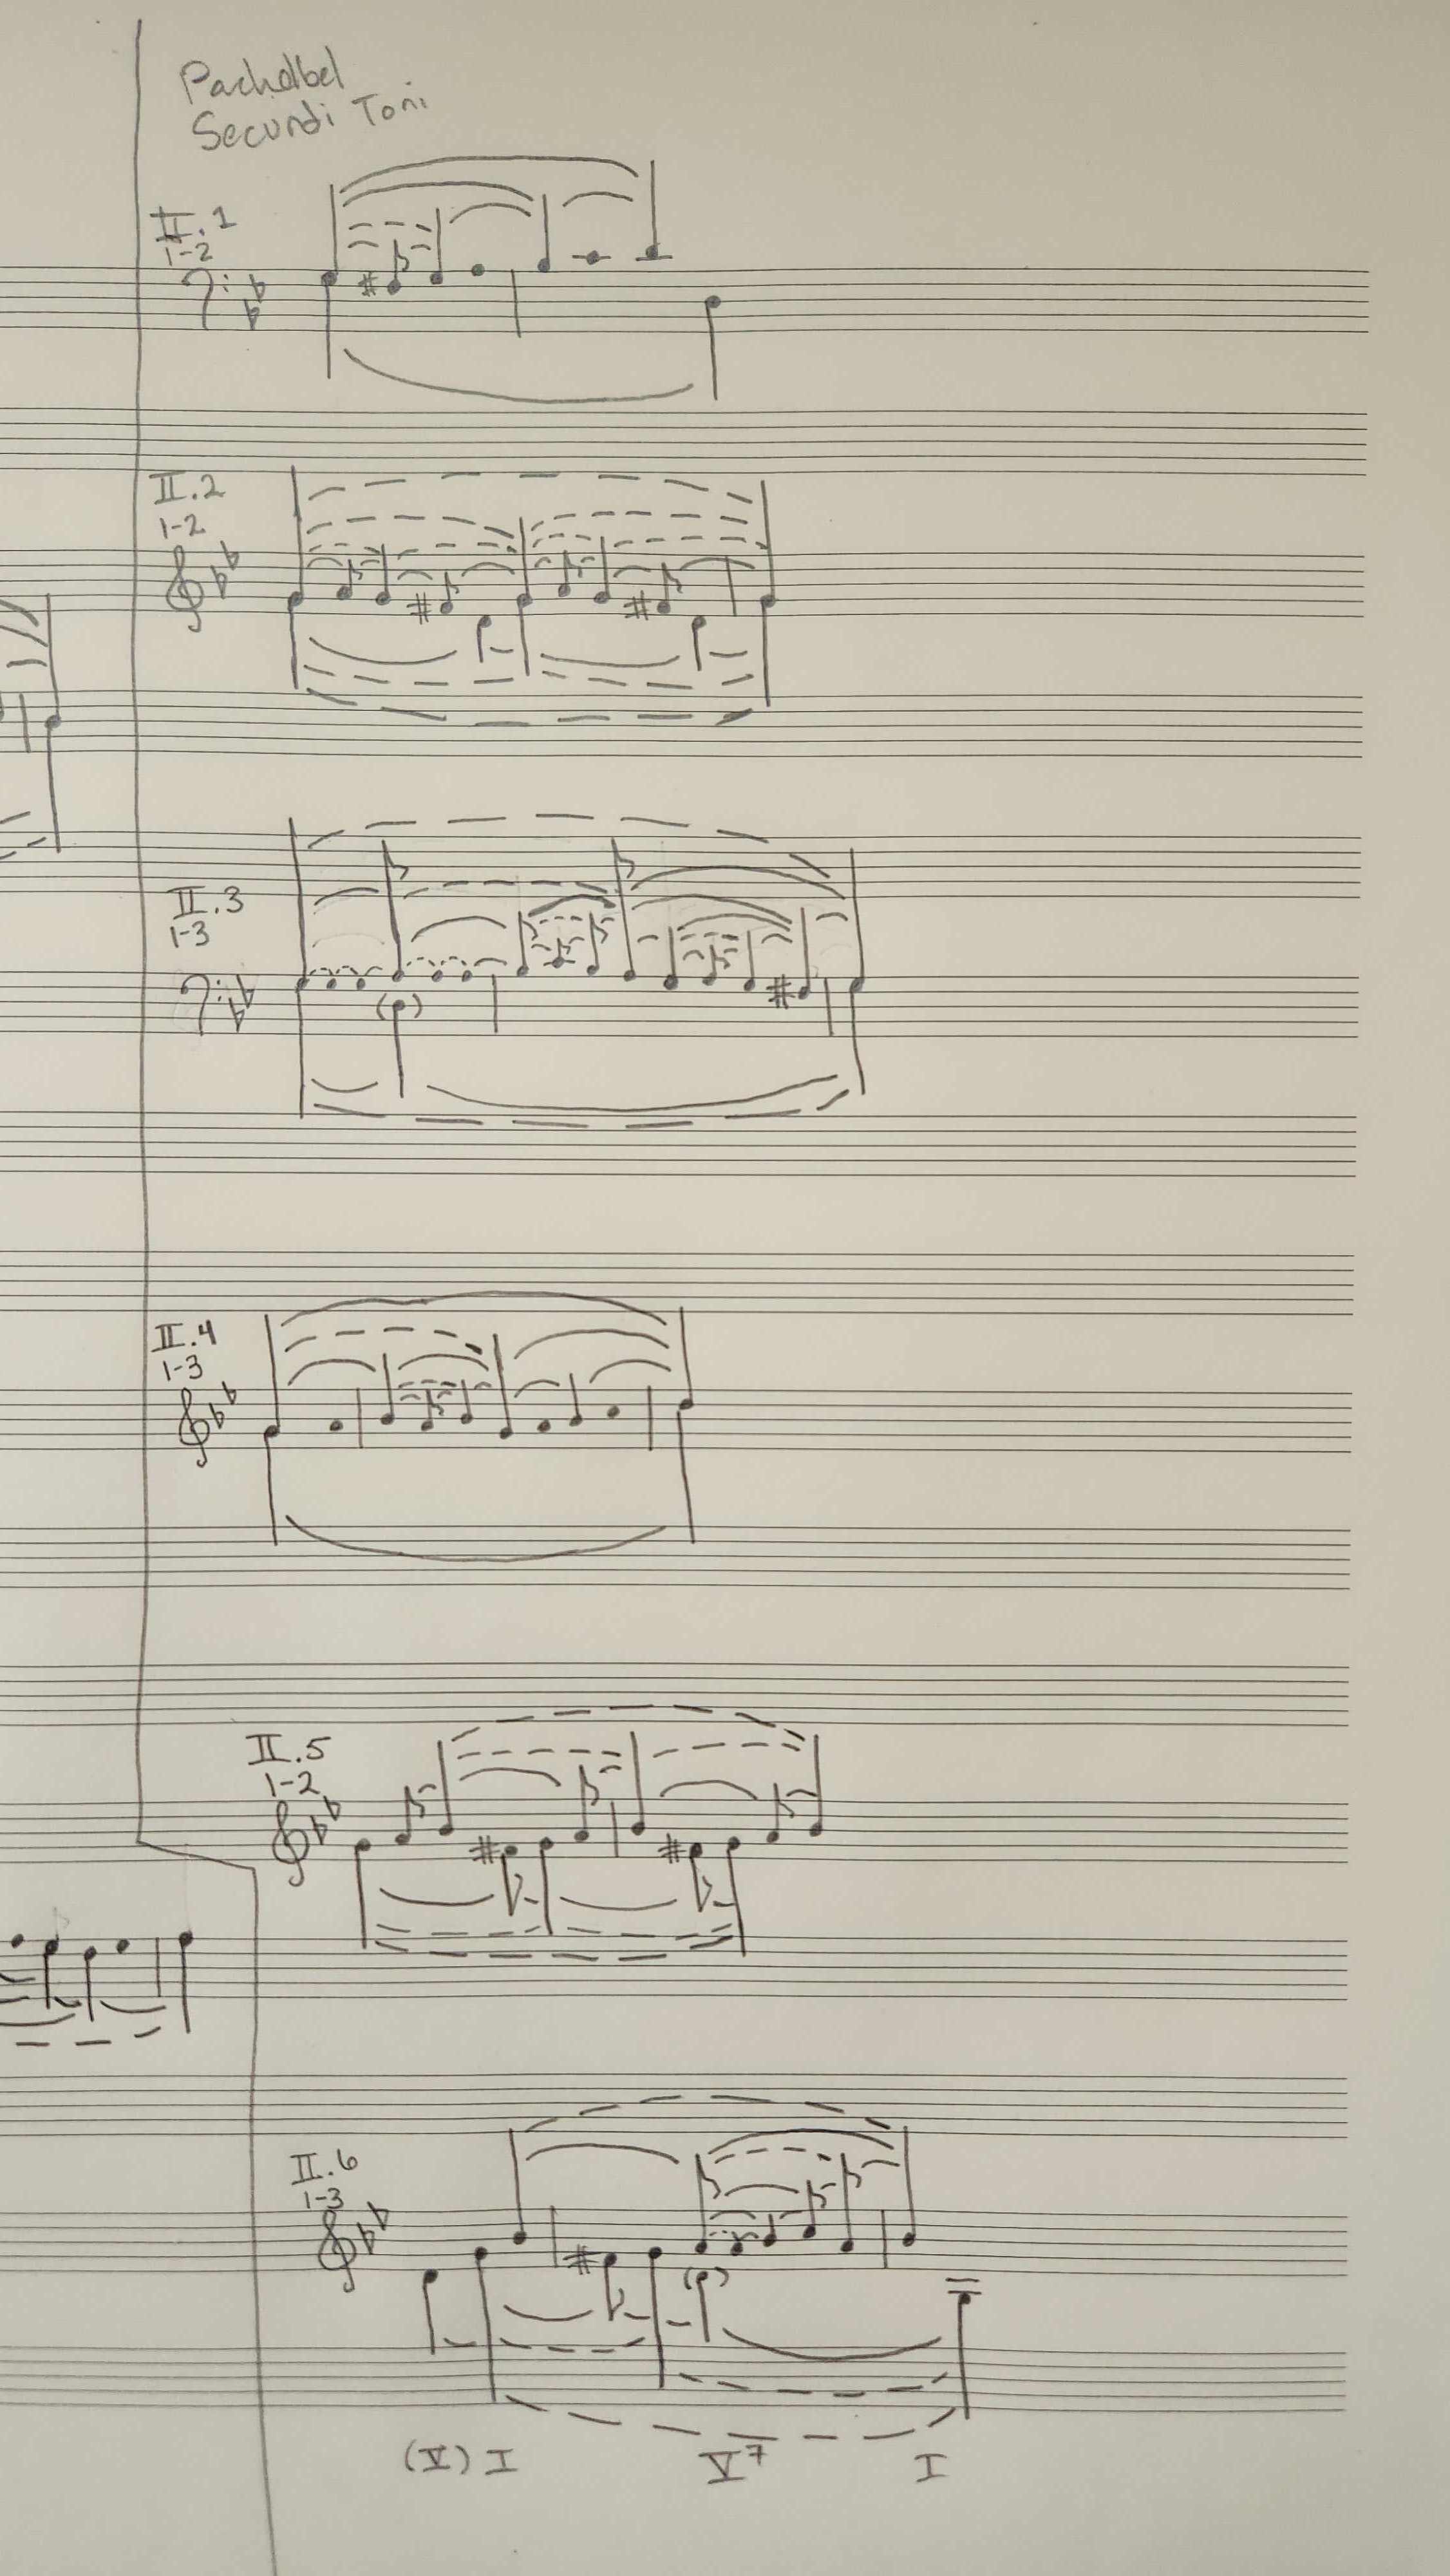 Pachelbel
Secundi Toni
II.1
1-2
II.2
1-2
II.3
1-3
II.4
1-3
II.5
1-2
II.6
1-3
(V) I V7 I